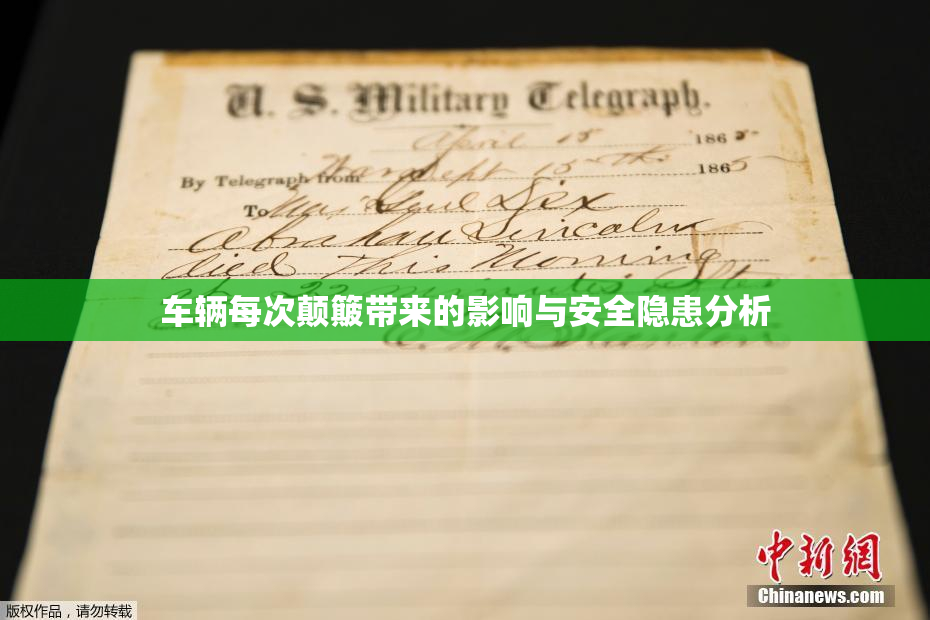 U. S. Military Telegraph.
April 15 1865
By Telegraph from War Dept 15th 1865
To Maj Genl Dix
Abraham Lincoln
died This Morning
at 22 minutes after
车辆每次颠簸带来的影响与安全隐患分析
中新网
Chinanews.com
版权作品，请勿转载